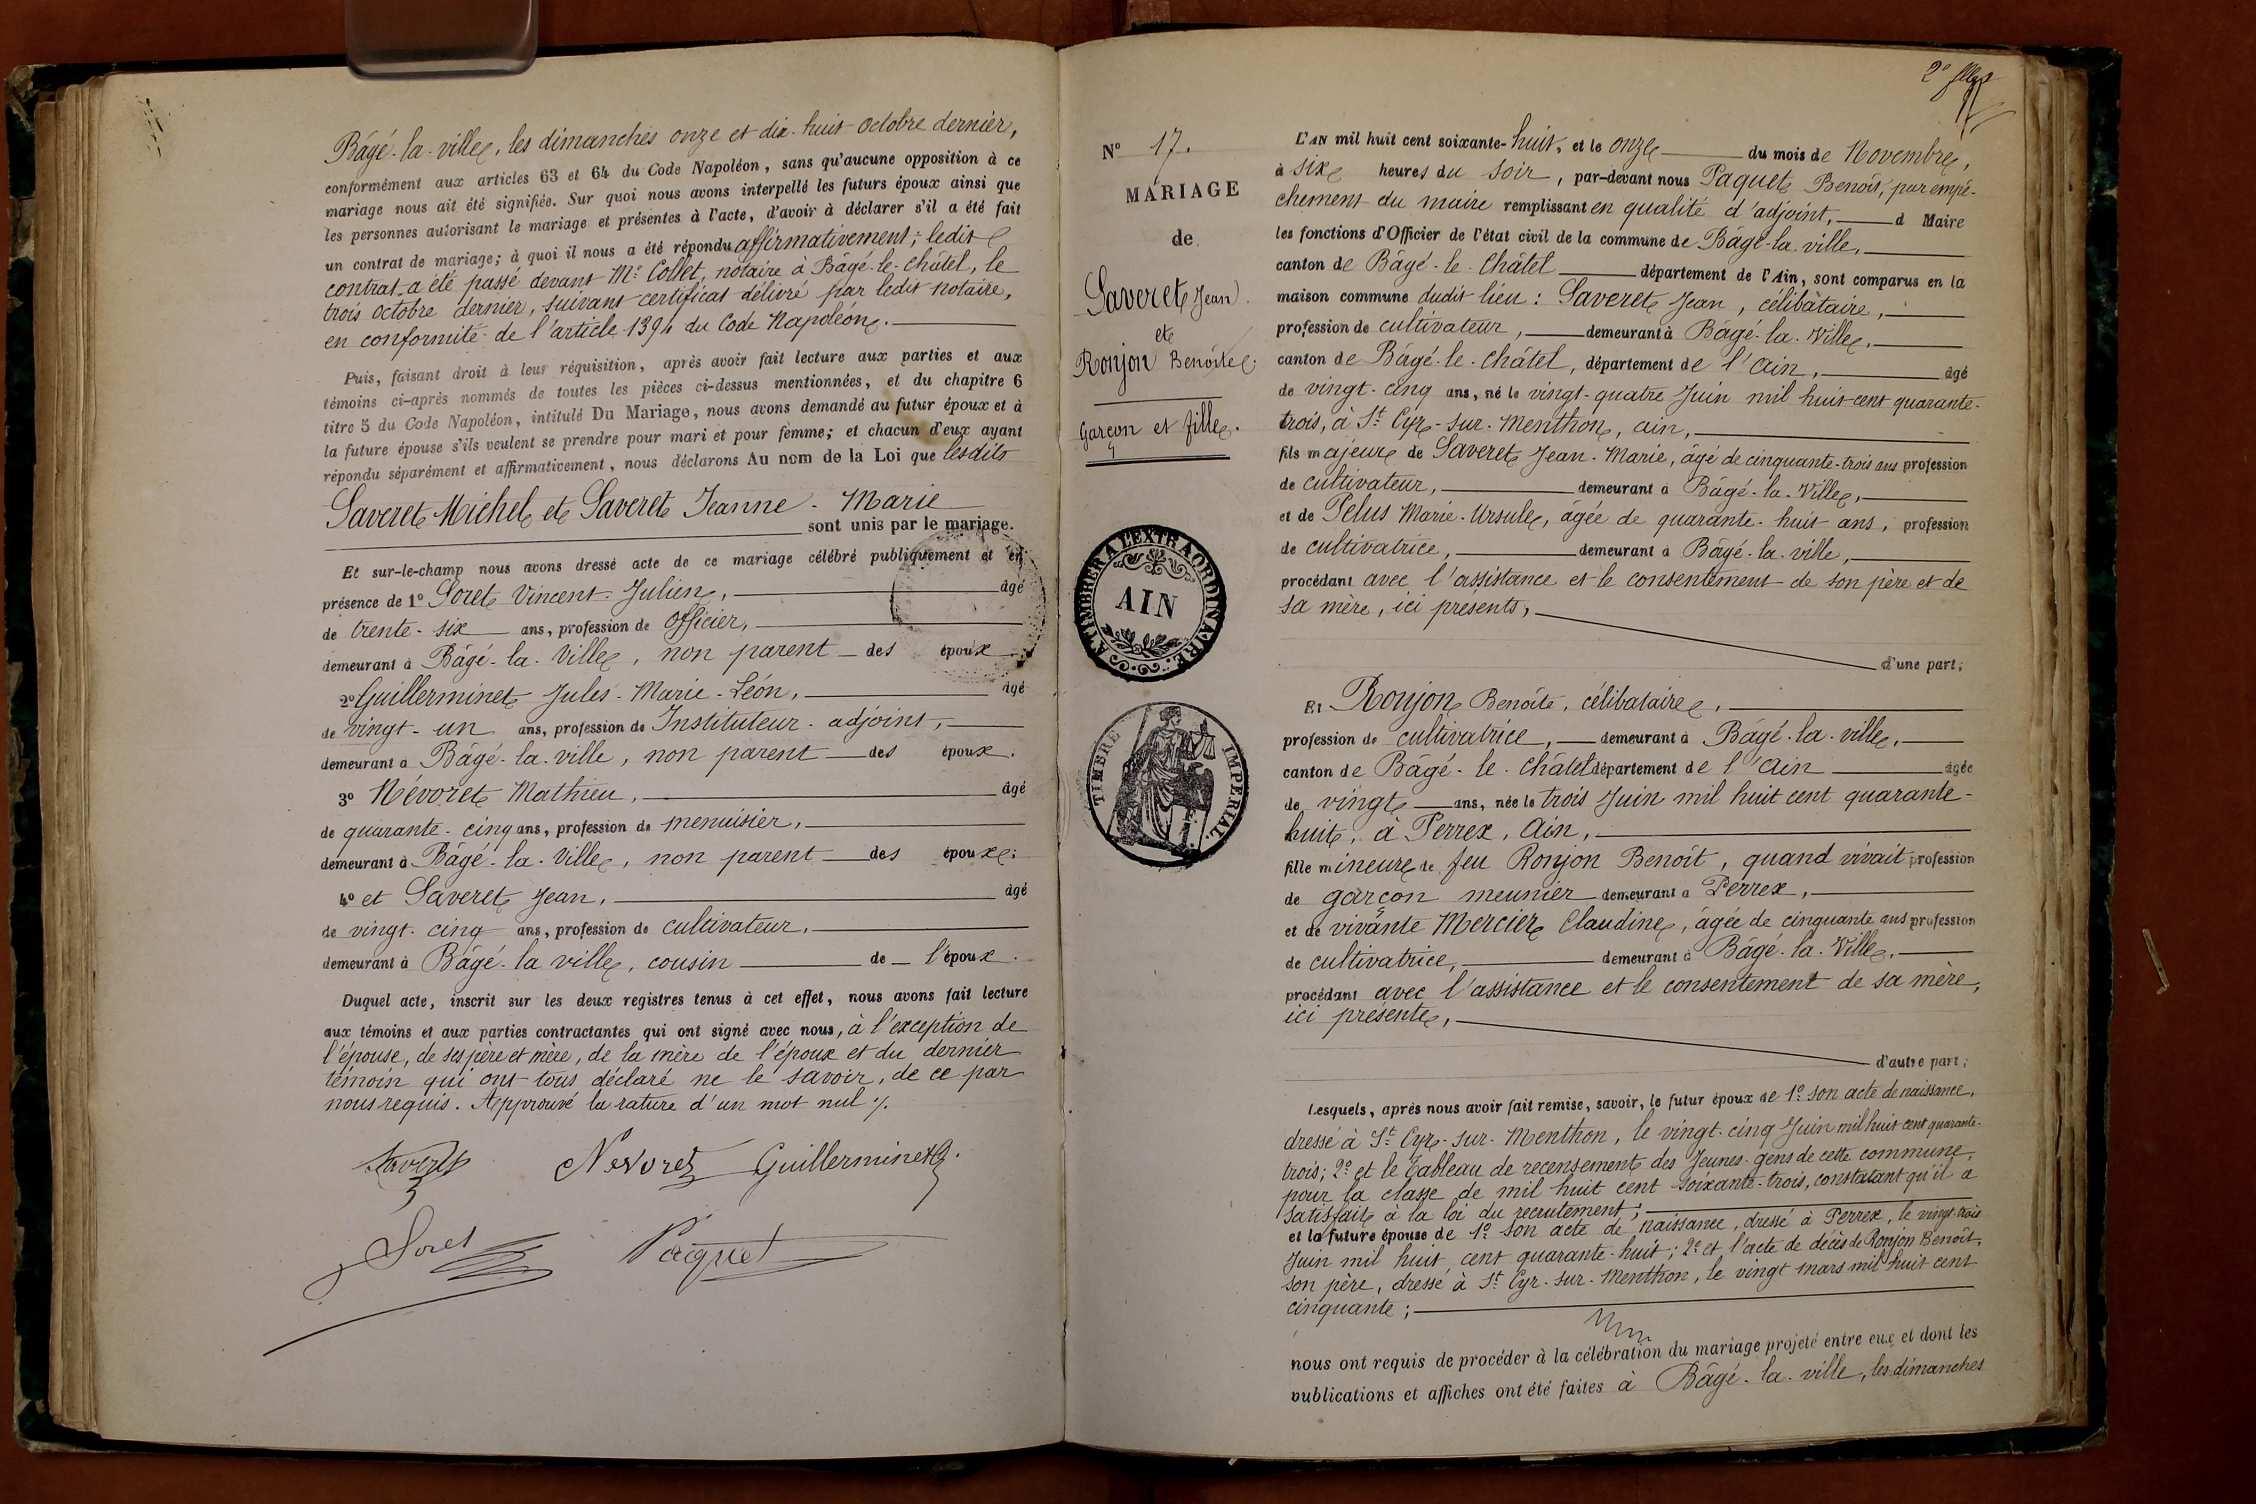 Bâgé-la-ville, les dimanches onze et dix-huit octobre dernier,
conformément aux articles 63 et 64 du Code Napoléon, sans qu'aucune opposition à ce
mariage nous ait été signifiée. Sur quoi nous avons interpellé les futurs époux ainsi que
les personnes autorisant le mariage et présentes à l'acte, d'avoir à déclarer s'il a été fait
un contrat de mariage; à quoi il nous a été répondu affirmativement; ledit
contrat a été passé devant Me Collet, notaire à Bâgé-le-Châtel, le
trois octobre dernier, suivant certificat délivré par ledit notaire,
en conformité de l'article 1394 du Code Napoléon.
Puis, faisant droit à leur réquisition, après avoir fait lecture aux parties et aux
témoins ci-après nommés de toutes les pièces ci-dessus mentionnées, et du chapitre 6
titre 5 du Code Napoléon, intitulé Du Mariage, nous avons demandé au futur époux et à
la future épouse s'ils veulent se prendre pour mari et pour femme; et chacun d'eux ayant
répondu séparément et affirmativement, nous déclarons Au nom de la Loi que lesdits
Saveret Michel et Saveret Jeanne-Marie
sont unis par le mariage.
Et sur-le-champ nous avons dressé acte de ce mariage célébré publiquement et en
présence de 1° Soret Vincent-Julien, âgé
de trente-six ans, profession de officier,
demeurant à Bâgé-la-Ville, non parent des époux
2° Guillerminet Jules-Marie-Léon, âgé
de vingt-un ans, profession de Instituteur-adjoint,
demeurant à Bâgé-la-ville, non parent des époux.
3° Névoret Mathieu, âgé
de quarante-cinq ans, profession de menuisier,
demeurant à Bâgé-la-Ville, non parent des époux;
4° et Saveret Jean, âgé
de vingt-cinq ans, profession de cultivateur,
demeurant à Bâgé-la ville, cousin de l'époux.
Duquel acte, inscrit sur les deux registres tenus à cet effet, nous avons fait lecture
aux témoins et aux parties contractantes qui ont signé avec nous, à l'exception de
l'épouse, de ses père et mère, de la mère de l'époux et du dernier
témoin qui ont tous déclaré ne le savoir, de ce par
nous requis. Approuvé la rature d'un mot nul ./.
Saveret Nevoret Guillerminet
Soret Paquet
N° 17.
MARIAGE
de
Saveret Jean
et
Ronjon Benoîte.
Garçon et fille.
A TIMBRER A L'EXTRAORDINAIRE
AIN
TIMBRE IMPERIAL.
L'AN mil huit cent soixante-huit, et le onze du mois de Novembre,
à six heures du soir, par-devant nous Paquet Benoît, par empê-
chement du maire remplissant en qualité d'adjoint, d Maire
les fonctions d'Officier de l'état civil de la commune de Bâgé-la-ville,
canton de Bâgé-le-Châtel département de l'Ain, sont comparus en la
maison commune dudit lieu: Saveret Jean, célibataire,
profession de cultivateur, demeurant à Bâgé-la-Ville,
canton de Bâgé-le-Châtel, département de l'ain, âgé
de vingt-cinq ans, né le vingt-quatre Juin mil huit-cent quarante-
trois, à St Cyr-sur-Menthon, ain,
fils majeur de Saveret Jean-Marie, âgé de cinquante-trois ans profession
de cultivateur, demeurant à Bâgé-la-Ville,
et de Pelus Marie-Ursule, âgée de quarante-huit ans, profession
de cultivatrice, demeurant à Bâgé-la-ville,
procédant avec l'assistance et le consentement de son père et de
sa mère, ici présents,
d'une part;
Et Ronjon Benoîte, célibataire,
profession de cultivatrice, demeurant à Bâgé-la-ville,
canton de Bâgé-le-Châtel département de l'ain âgée
de vingt ans, née le trois Juin mil huit cent quarante-
huit, à Perrex, Ain,
fille mineure de feu Ronjon Benoît, quand vivait profession
de garçon meunier demeurant à Perrex,
et de vivante Mercier Claudine, âgée de cinquante ans profession
de cultivatrice, demeurant à Bâgé-la-Ville,
procédant avec l'assistance et le consentement de sa mère,
ici présente,
d'autre part;
Lesquels, après nous avoir fait remise, savoir, le futur époux de 1° son acte de naissance,
dressé à St Cyr-sur-Menthon, le vingt-cinq Juin mil huit cent quarante-
trois; 2° et le Tableau de recensement des Jeunes-gens de cette commune,
pour la classe de mil huit cent soixante-trois, constatant qu'il a
satisfait à la loi du recrutement;
et la future épouse de 1° son acte de naissance, dressé à Perrex, le vingt-trois
Juin mil huit cent quarante-huit; 2° et l'acte de décès de Ronjon Benoît,
son père, dressé à St Cyr-sur-Menthon, le vingt mars mil huit cent
cinquante;
nous ont requis de procéder à la célébration du mariage projeté entre eux et dont les
publications et affiches ont été faites à Bâgé-la-ville, les dimanches